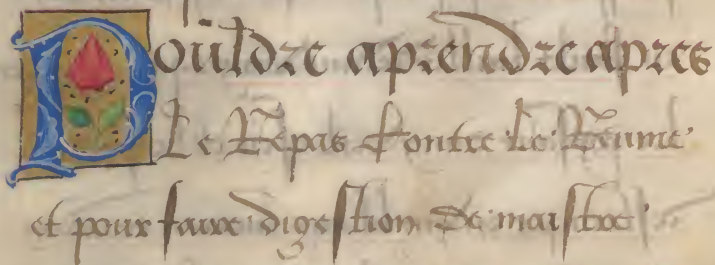 Pouldre aprendre apres
Le Repas Contre Le Reume
et pour faire digestion De maistre